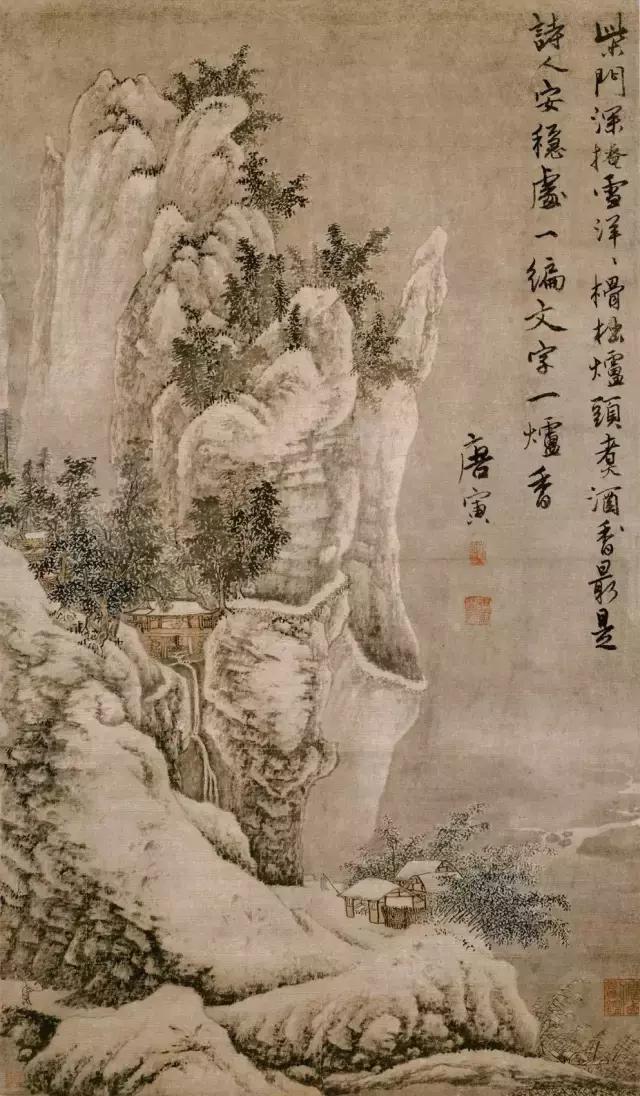 柴門深掩雪洋〻榾柮爐頭煑酒香最是
詩人安穩處一編文字一爐香
唐寅